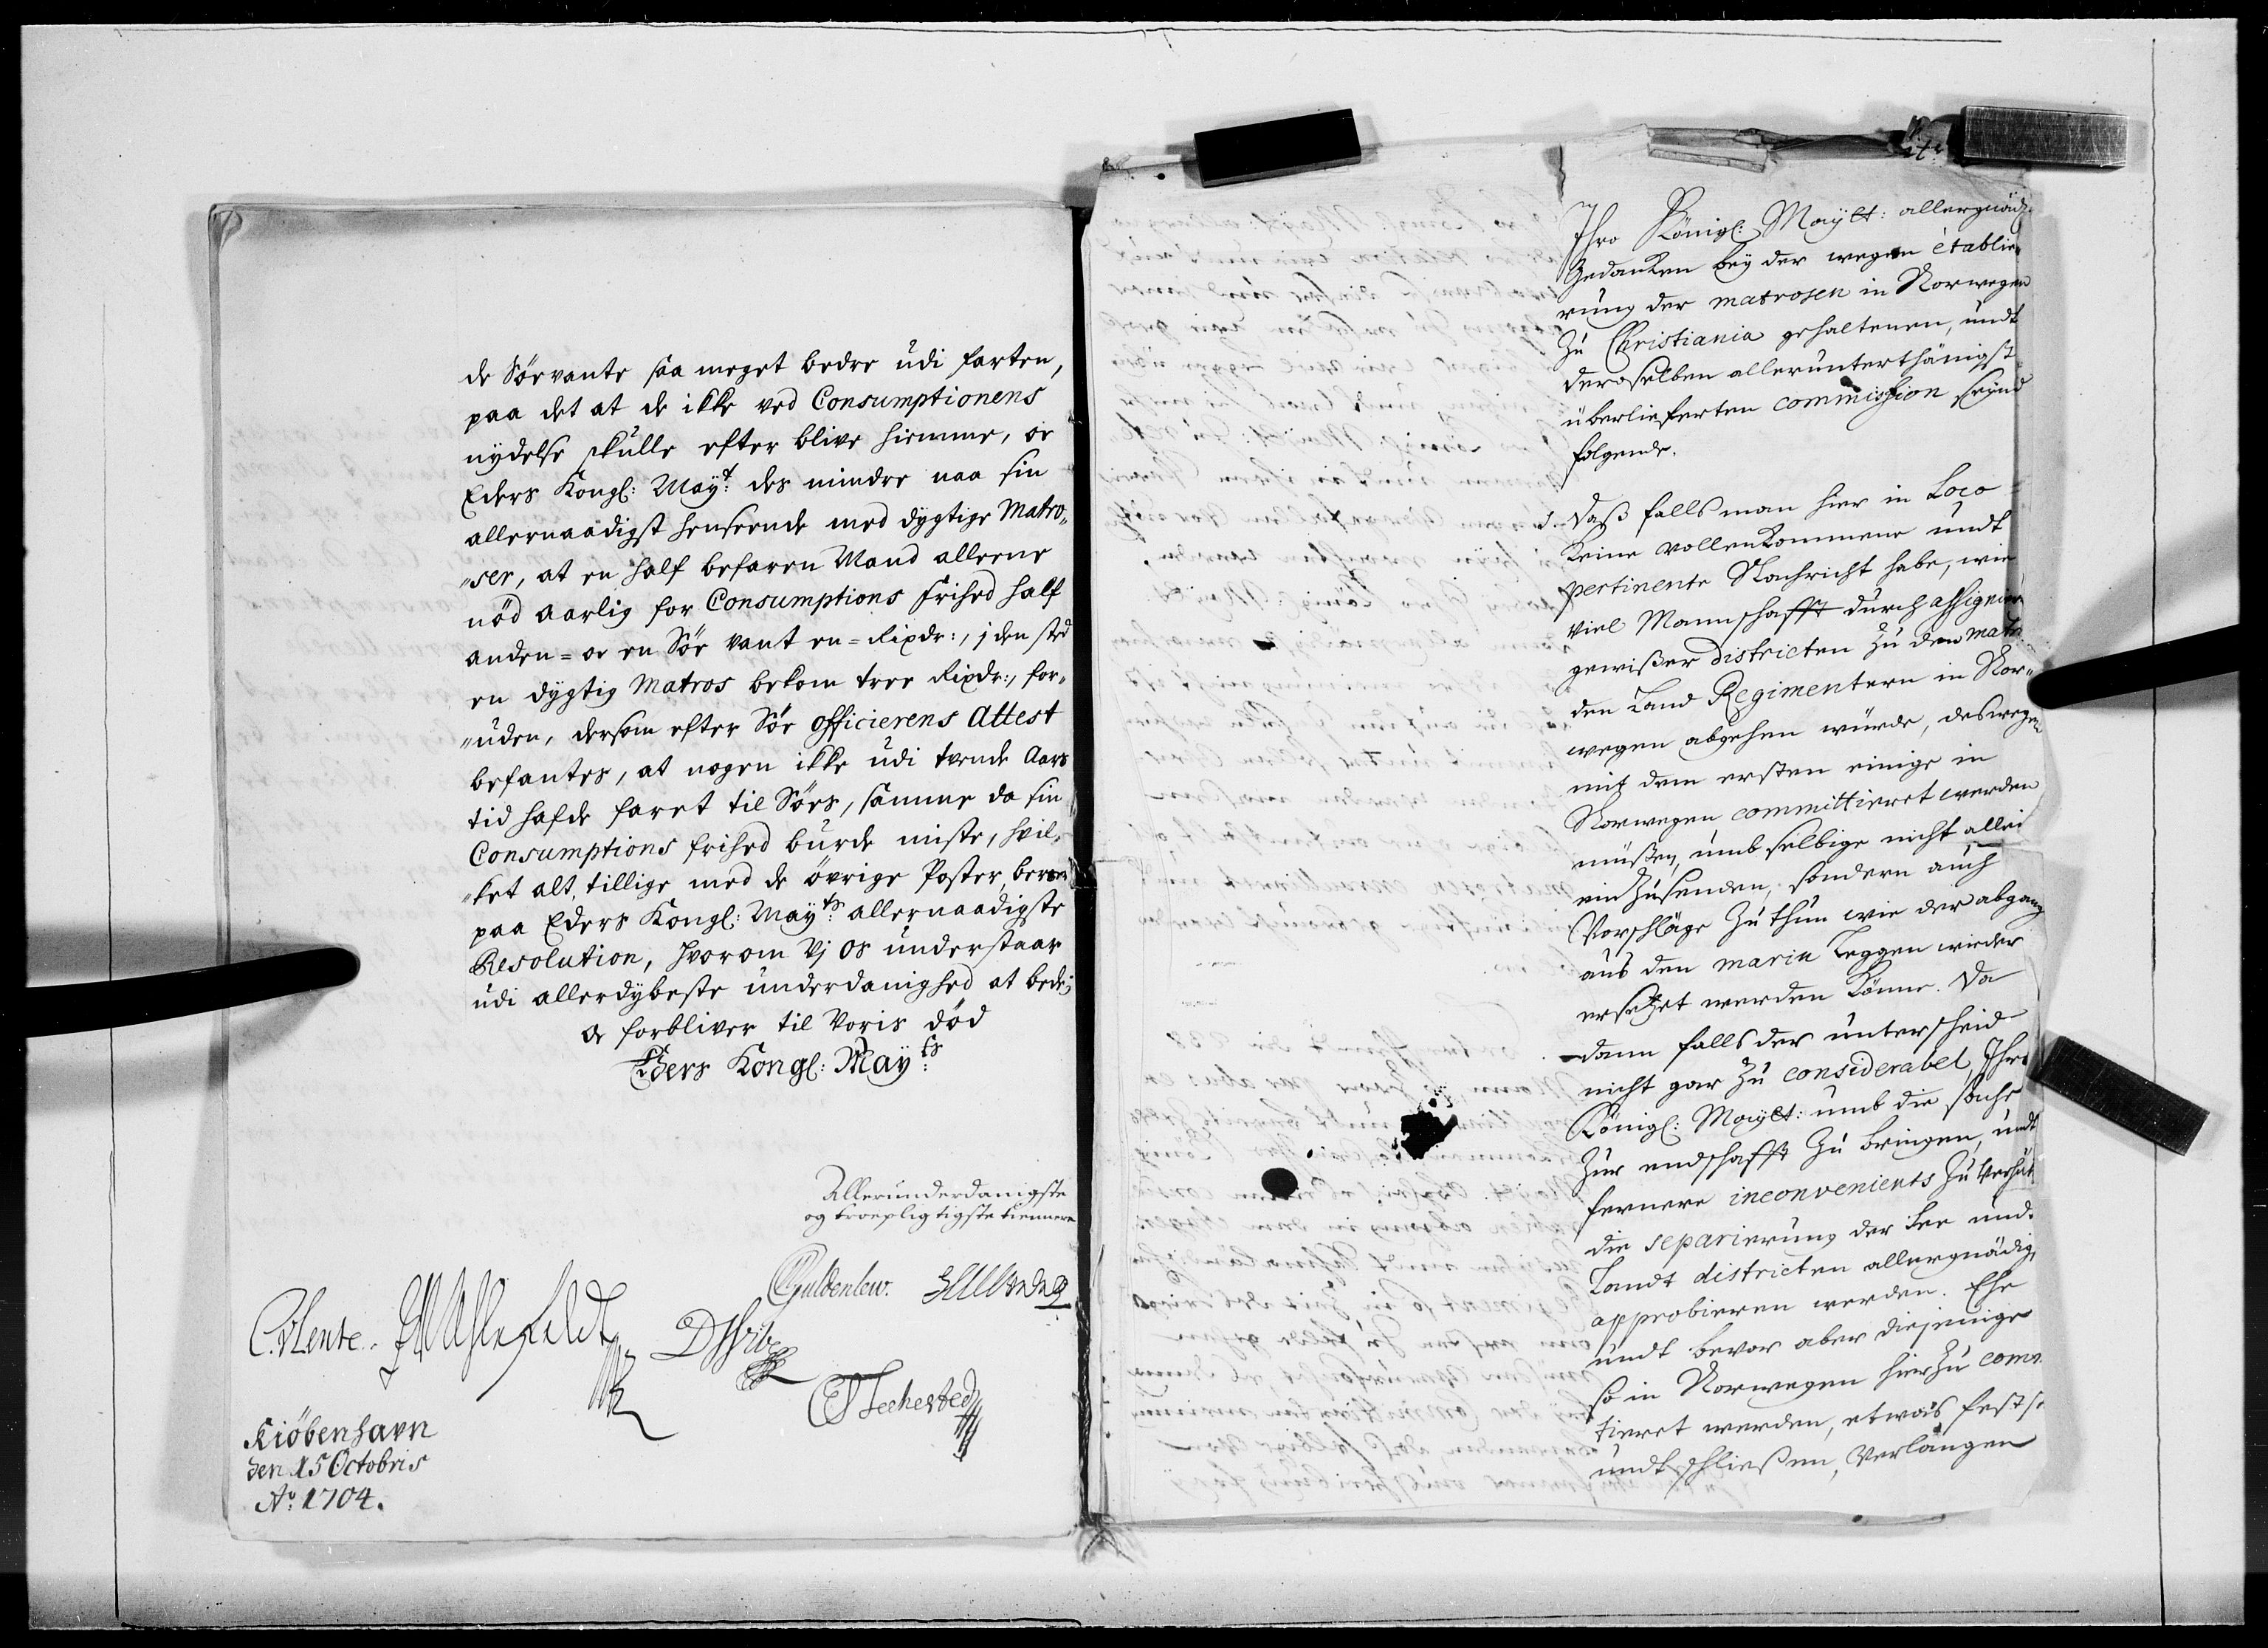 de Söevante saa meget bedre udi farten,
paa det at de ikke ved Consumptionens
nydelse skulle efter blive hiemme, oc
Eders Kongl: Mayt: des mindre naa sin
allernaadigst henseende med dygtige Matro„
„ser, at en half befaren Mand alleene
nöd aarlig for Consumptions frihed half
anden= oc en Söe vant en= Rixdr:, i den sted
en dygtig Matros bekom tree Rixdr:, for„
„uden, dersom efter Söe officierens Attest
befantes, at nogen ikke udi tvende Aars
tid hafde faret til Söes, samme da sin
Consumptions frihed burde miste, hvil„
„ket alt, tillige med de övrige Poster, beroer
paa Eders Kongl: Mayts: allernaadigste
Resolution, hvorom Vi os understaar
udi allerdybeste underdanighed at bede,
oc forbliver til Voris död
Eders Kongl: Mayts:
Allerunderdanigste
og troepligtigste tienere
CGuldenlew.
C. Vlente.
Ahlefeldt
DWibe
CSeehested
Kiöbenhavn
den 15 Octobris
Ao: 1704.
Ihro Königl: Maytt: allergnäd
Gedanken bey der wegen établie„
rung der matrosen in Norwegen
zu Christiania gehaltenen, undt
deroselben allerunterthänigst
überlieferten commission seynd
folgende.
1. Daß falls man hier in Loco
keine vollenkommene undt
pertinente Nachricht habe, wie
viel Mannschafft durch assignir
gewißer districten zu den matr
den Land Regimentern in Nor„
wegen abgehen würde, deswegen
mit dem ersten einige in
Norwegen committieret werden
müßen, umb selbige nicht allei
einzusenden, sondern auch
Vorschläge zu thun wie der abgang
aus den marin Leggen wieder
ersetzet werden könne. Da
dann falls der unterscheid
nicht gar zu considerabel, Ihro
Königl: Maytt: umb die sache
zur endschafft zu bringen, undt
fernere inconvenients zu verhüt
die separierung der See und
Landt districten allergnädig
approbieren werden. Ehe
undt bevor aber diejenige
so in Norwegen hierzu comm
tieret werden, etwas fest s
undt schließen, verlangen